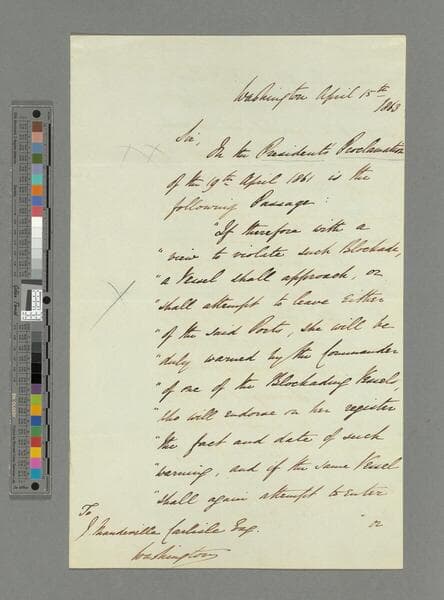 Washington April 15th
1863
Sir,
In the Presidents Proclamation
of the 19th April 1861 is the
following Passage:
"If therefore with a
"view to violate such Blockade,
"a Vessel shall approach, or
"shall attempt to leave Either
"of the said Ports, she will be
"duly warned by the Commander
"of one of the Blockading Vessels,
"who will endorse on her register
"the fact and date of such
"warning, and if the same Vessel
"shall again attempt to Enter
"or
To
J. Mandeville Carlisle Esq.
Washington